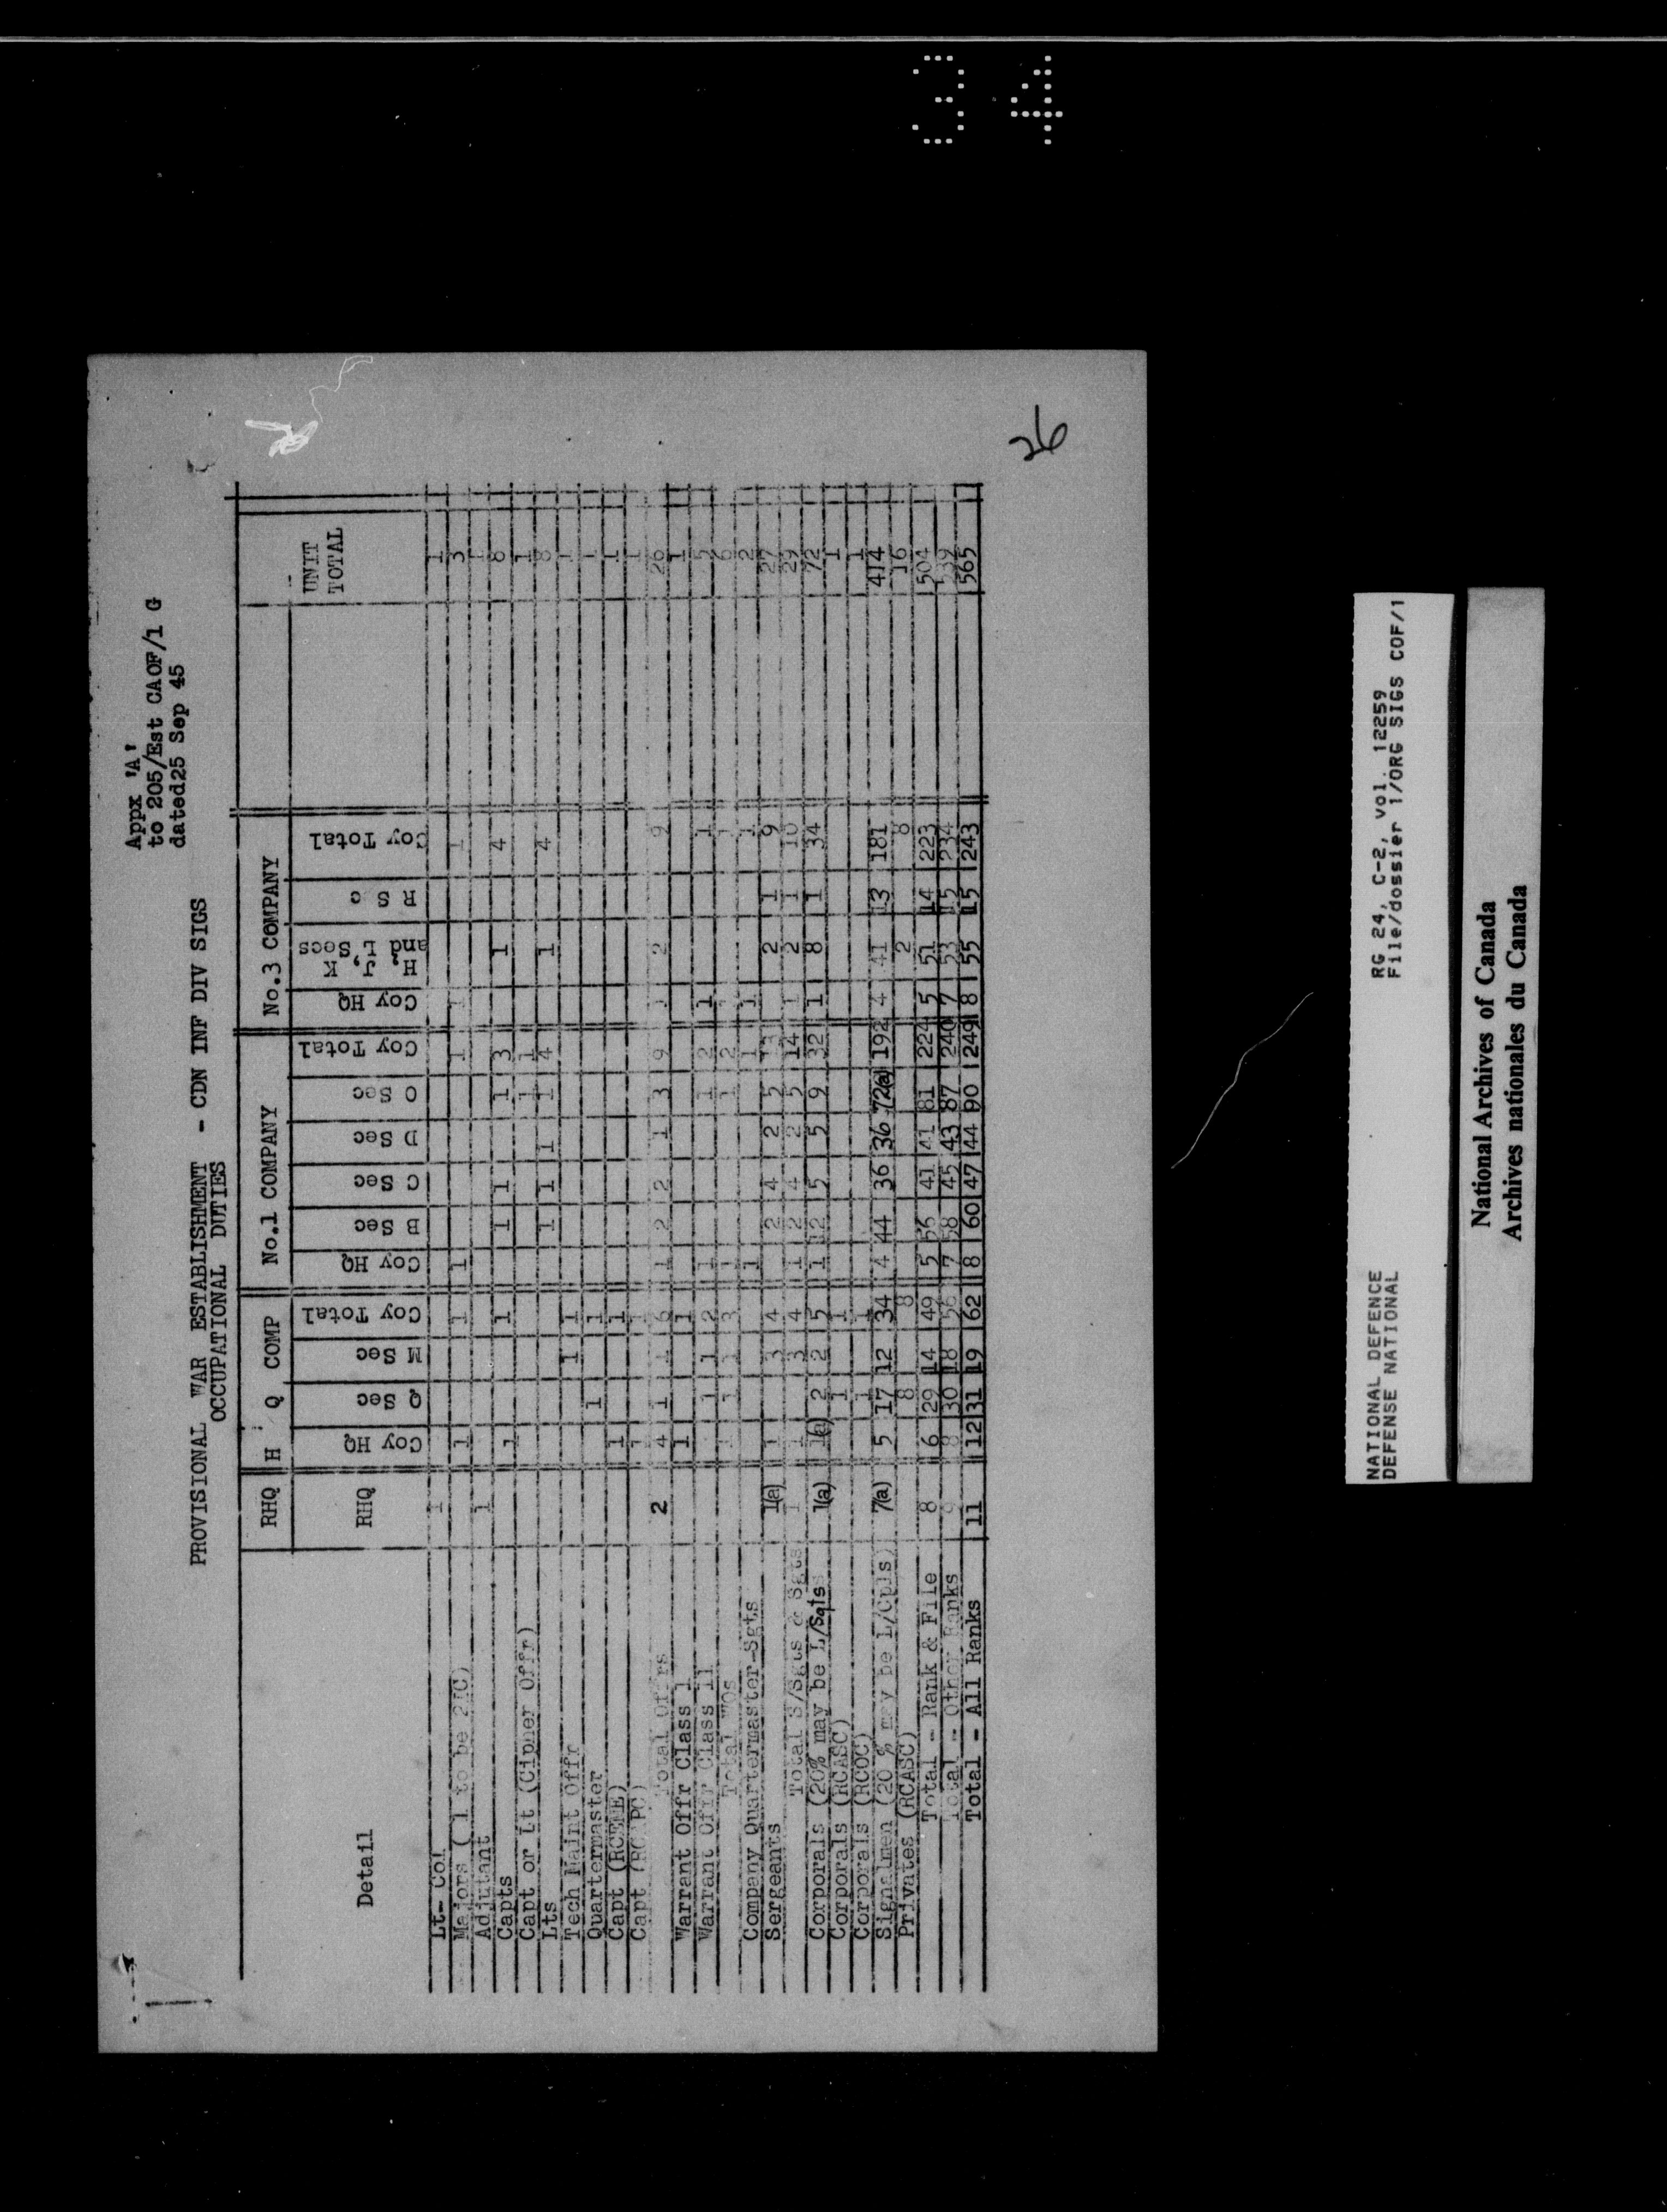 34
Appx 'A'
to 205/Est CAOF/1 G
dated25 Sep 45
PROVISIONAL WAR ESTABLISHMENT - CDN INF DIV SIGS
OCCUPATIONAL DUTIES
RHQ H Q COMP No.1 COMPANY No.3 COMPANY
Detail RHQ Coy HQ Q Sec M Sec Coy Total Coy HQ B Sec C Sec D Sec O Sec Coy Total Coy HQ H, J, K and L Secs R S c Coy Total UNIT TOTAL
Lt- Col 1 1
Majors ( 1 to be 2IC) 1 1 1 1 1 1 3
Adjutant 1 1
Capts 1 1 1 1 1 3 1 4 8
Capt or Lt (Cipher Offr) 1 1 1
Lts 1 1 1 1 4 1 4 8
Tech Maint Offr 1 1 1
Quartermaster 1 1 1
Capt (RCEME) 1 1 1
Capt (RCAPC) 1 1 1
Total Offrs 2 4 1 1 6 1 2 2 1 3 9 1 2 9 26
Warrant Offr Class 1 1 1 1
Warrant Offr Class 11 1 1 2 1 1 2 1 1 5
Total WOs 1 1 1 3 1 1 2 1 1 6
Company Quartermaster-Sgts 1 1 1 1 2
Sergeants 1(a) 1 3 4 2 4 2 5 13 2 1 9 27
Total S/Sgts & Sgts 1 1 3 4 1 2 4 2 5 14 1 2 1 10 29
Corporals (20% may be L/Sgts 1(a) 1(a) 2 2 5 1 12 5 5 9 32 1 8 1 34 72
Corporals (RCASC) 1 1 1
Corporals (RCOC) 1 1 1
Signalmen (20 % may be L/Cpls) 7(a) 5 17 12 34 4 44 36 36 72(a) 192 4 41 13 181 414
Privates (RCASC) 8 8 2 8 16
Total - Rank & File 8 6 29 14 49 5 56 41 41 81 224 5 51 14 223 504
Total - Other Ranks 9 8 30 18 56 7 58 45 43 87 240 7 53 15 234 539
Total - All Ranks 11 12 31 19 62 8 60 47 44 90 249 8 55 15 243 565
26
NATIONAL DEFENCE RG 24, C-2, vol. 12259
DEFENSE NATIONAL File/dossier 1/ORG SIGS COF/1
National Archives of Canada
Archives nationales du Canada